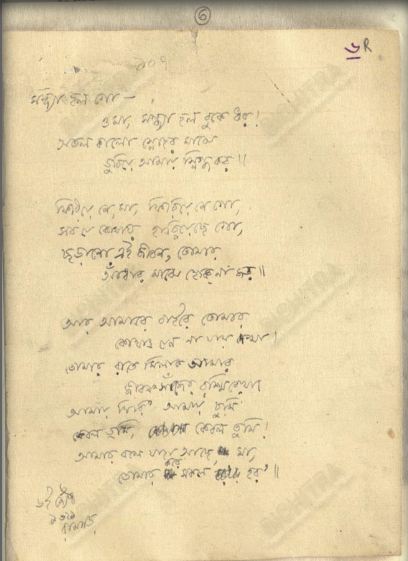 ৬
১০৭
৬R
সন্ধ্যা হল গো —
ওমা, সন্ধ্যা হল বুকে ধর!
অতল কালো স্নেহের মাঝে
ডুবিয়ে আমায় স্নিগ্ধ কর॥
ফিরিয়ে নে, মা, ফিরিয়ে নে গো,
সব যে কোথায় হারিয়েছে গো,
ছড়ানো এই জীবন, তোমার
আঁধার মাঝে হোক্ না জড়॥
আর আমারে বাইরে তোমার
কোথাও যেন না যায় দেখা।
তোমার রাতে মিলাক আমার
জীবন সাঁজের রশ্মিরেখা
আমায় ঘিরি আমায় চুমি
কেবল তুমি, কেবল তুমি।
আমার বলে যাহা আছে, মা,
তোমার করে সকল হর॥
৬ই পৌষ
রামগড়
DICHITRA